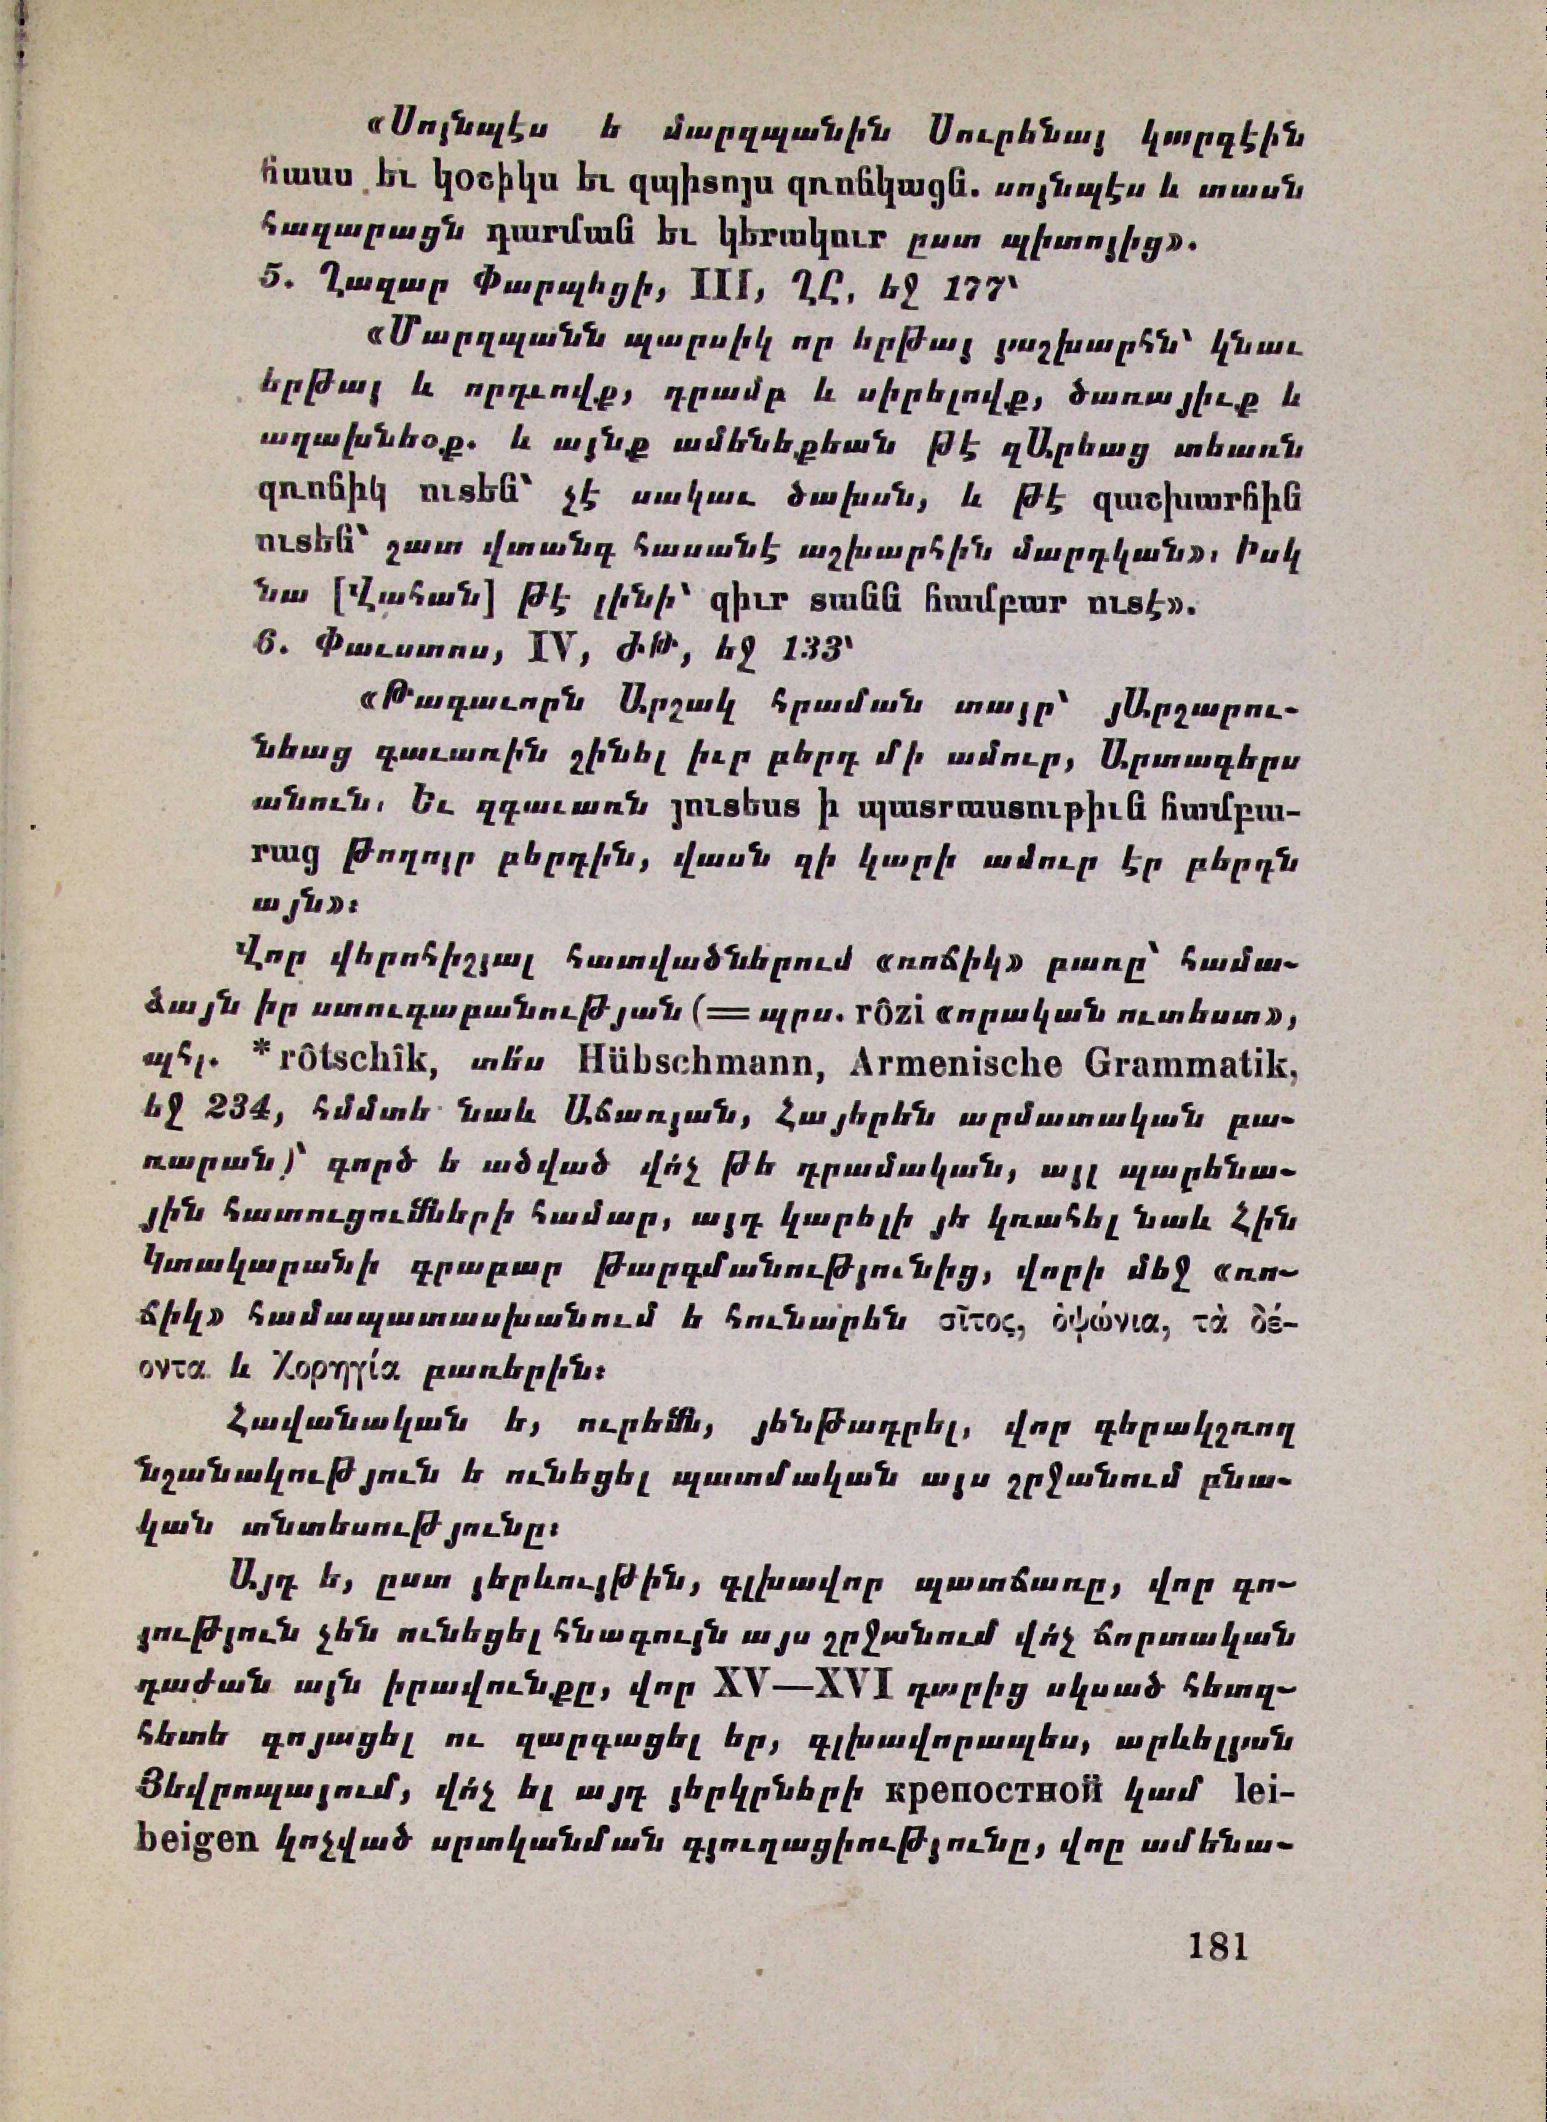 «Սոյնպէս ե մարզպանին Սուրենայ կարգէին
հասս եւ կօշիկս եւ զպիտոյս զռոճկացն. սոյնպէս և տասն
հազարացն դարման եւ կերակուր ըստ պիտոյից».
5. Ղազար Փարպեցի, III, ՂԸ, եջ 177՝
«Մարզպանն պարսիկ որ երթայ յաշխարհն՝ կնաւ
երթայ և որդւովք, դրամբ և սիրելովք, ծառայիւք և
աղախնեօք. և այնք ամենեքեան թէ զԱրեաց տեառն
զռոճիկ ուտեն՝ չէ սակաւ ծախսն, և թէ զաշխարհին
ուտեն՝ շատ վտանգ հասանէ աշխարհին մարդկան»։ Իսկ
նա [Վահան] թէ լինի՝ զիւր տանն համբար ուտէ».
6. Փաւստոս, IV, ԺԹ, եջ 133՝
«Թագաւորն Արշակ հրաման տայր՝ յԱրշարու-
նեաց գաւառին շինել իւր բերդ մի ամուր, Արտագերս
անուն։ Եւ զգաւառն յուտեստ ի պատրաստութիւն համբա-
րաց թողոյր բերդին, վասն զի կարի ամուր էր բերդն
այն»։
Վոր վերոհիշյալ հատվածներում «ռոճիկ» բառը՝ համա-
ձայն իր ստուգաբանության (= պրս. rôzi «որական ուտեստ»,
պհլ. *rôtschîk, տե՛ս Hübschmann, Armenische Grammatik,
եջ 234, հմմտե նաև Աճառյան, Հայերեն արմատական բա-
ռարան)՝ գործ ե ածված վո՛չ թե դրամական, այլ պարենա-
յին հատուցումների համար, այդ կարելի յե կռահել նաև Հին
Կտակարանի գրաբար թարգմանությունից, վորի մեջ «ռո-
ճիկ» համապատասխանում ե հունարեն σῖτος, ὀψώνια, τὰ δέ-
οντα և Χορηγία բառերին։
Հավանական ե, ուրեմն, յենթադրել, վոր գերակշռող
նշանակություն ե ունեցել պատմական այս շրջանում բնա-
կան տնտեսությունը։
Այդ ե, ըստ յերևույթին, գլխավոր պատճառը, վոր գո-
յություն չեն ունեցել հնագույն այս շրջանում վո՛չ ճորտական
դաժան այն իրավունքը, վոր XV—XVI դարից սկսած հետզ-
հետե գոյացել ու զարգացել եր, գլխավորապես, արևելյան
Յեվրոպայում, վո՛չ ել այդ յերկրների крепостной կամ lei-
beigen կոչված սրտկանման գյուղացիությունը, վոը ամենա-
181